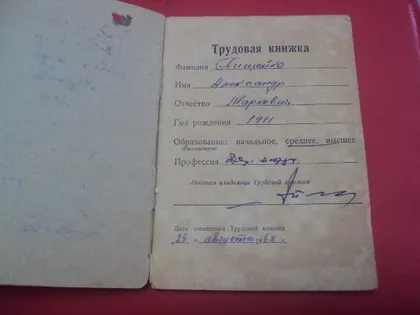 Трудовая книжка
Фамилия
Имя Александр
Отчество Маркович
Год рождения 1911
Образование: начальное, среднее, высшее
(Подчеркнуть)
Профессия
Подпись владельца Трудовой книжки
Дата заполнения Трудовой книжки
24 августа г.